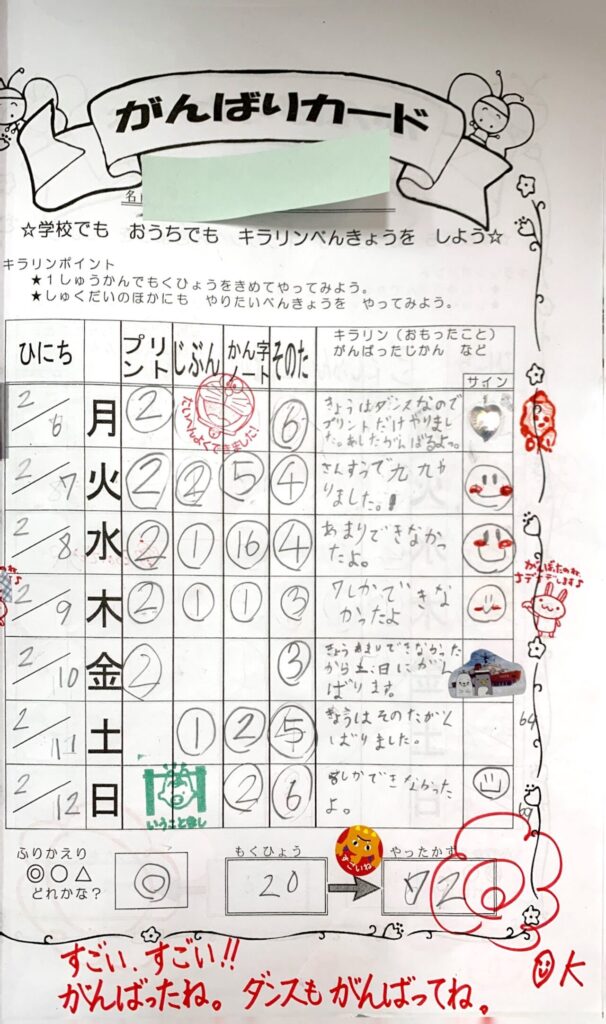 がんばりカード
☆学校でも おうちでも キラリンべんきょうを しよう☆
キラリンポイント
★1しゅうかんでもくひょうをきめてやってみよう。
★しゅくだいのほかにも やりたいべんきょうを やってみよう。
ひにち プリント じぶん かん字ノート そのた キラリン(おもったこと)
がんばったじかん など
サイン
2/6 月 2 6 きょうはダンスなので
プリントだけやりまし
た。あしたがんばるよっ。
たいへんよくできました!
2/7 火 2 2 5 4 さんすうで九九や
りました。
2/8 水 2 1 16 4 あまりできなかっ
たよ。
2/9 木 2 1 1 3 7しかできな
かったよ
がんばったのね
2/10 金 2 3 きょうあまりできなかった
から土、日にがん
ばります。
2/11 土 1 2 5 きょうはそのたがん
ばりました。
2/12 日 2 6 8しかできなかった
よ。
いうことなし
ふりかえり
◎○△
どれかな?
◎
もくひょう
20
すごいね
やったかず
72
すごい、すごい!!
がんばったね。ダンスもがんばってね。
K